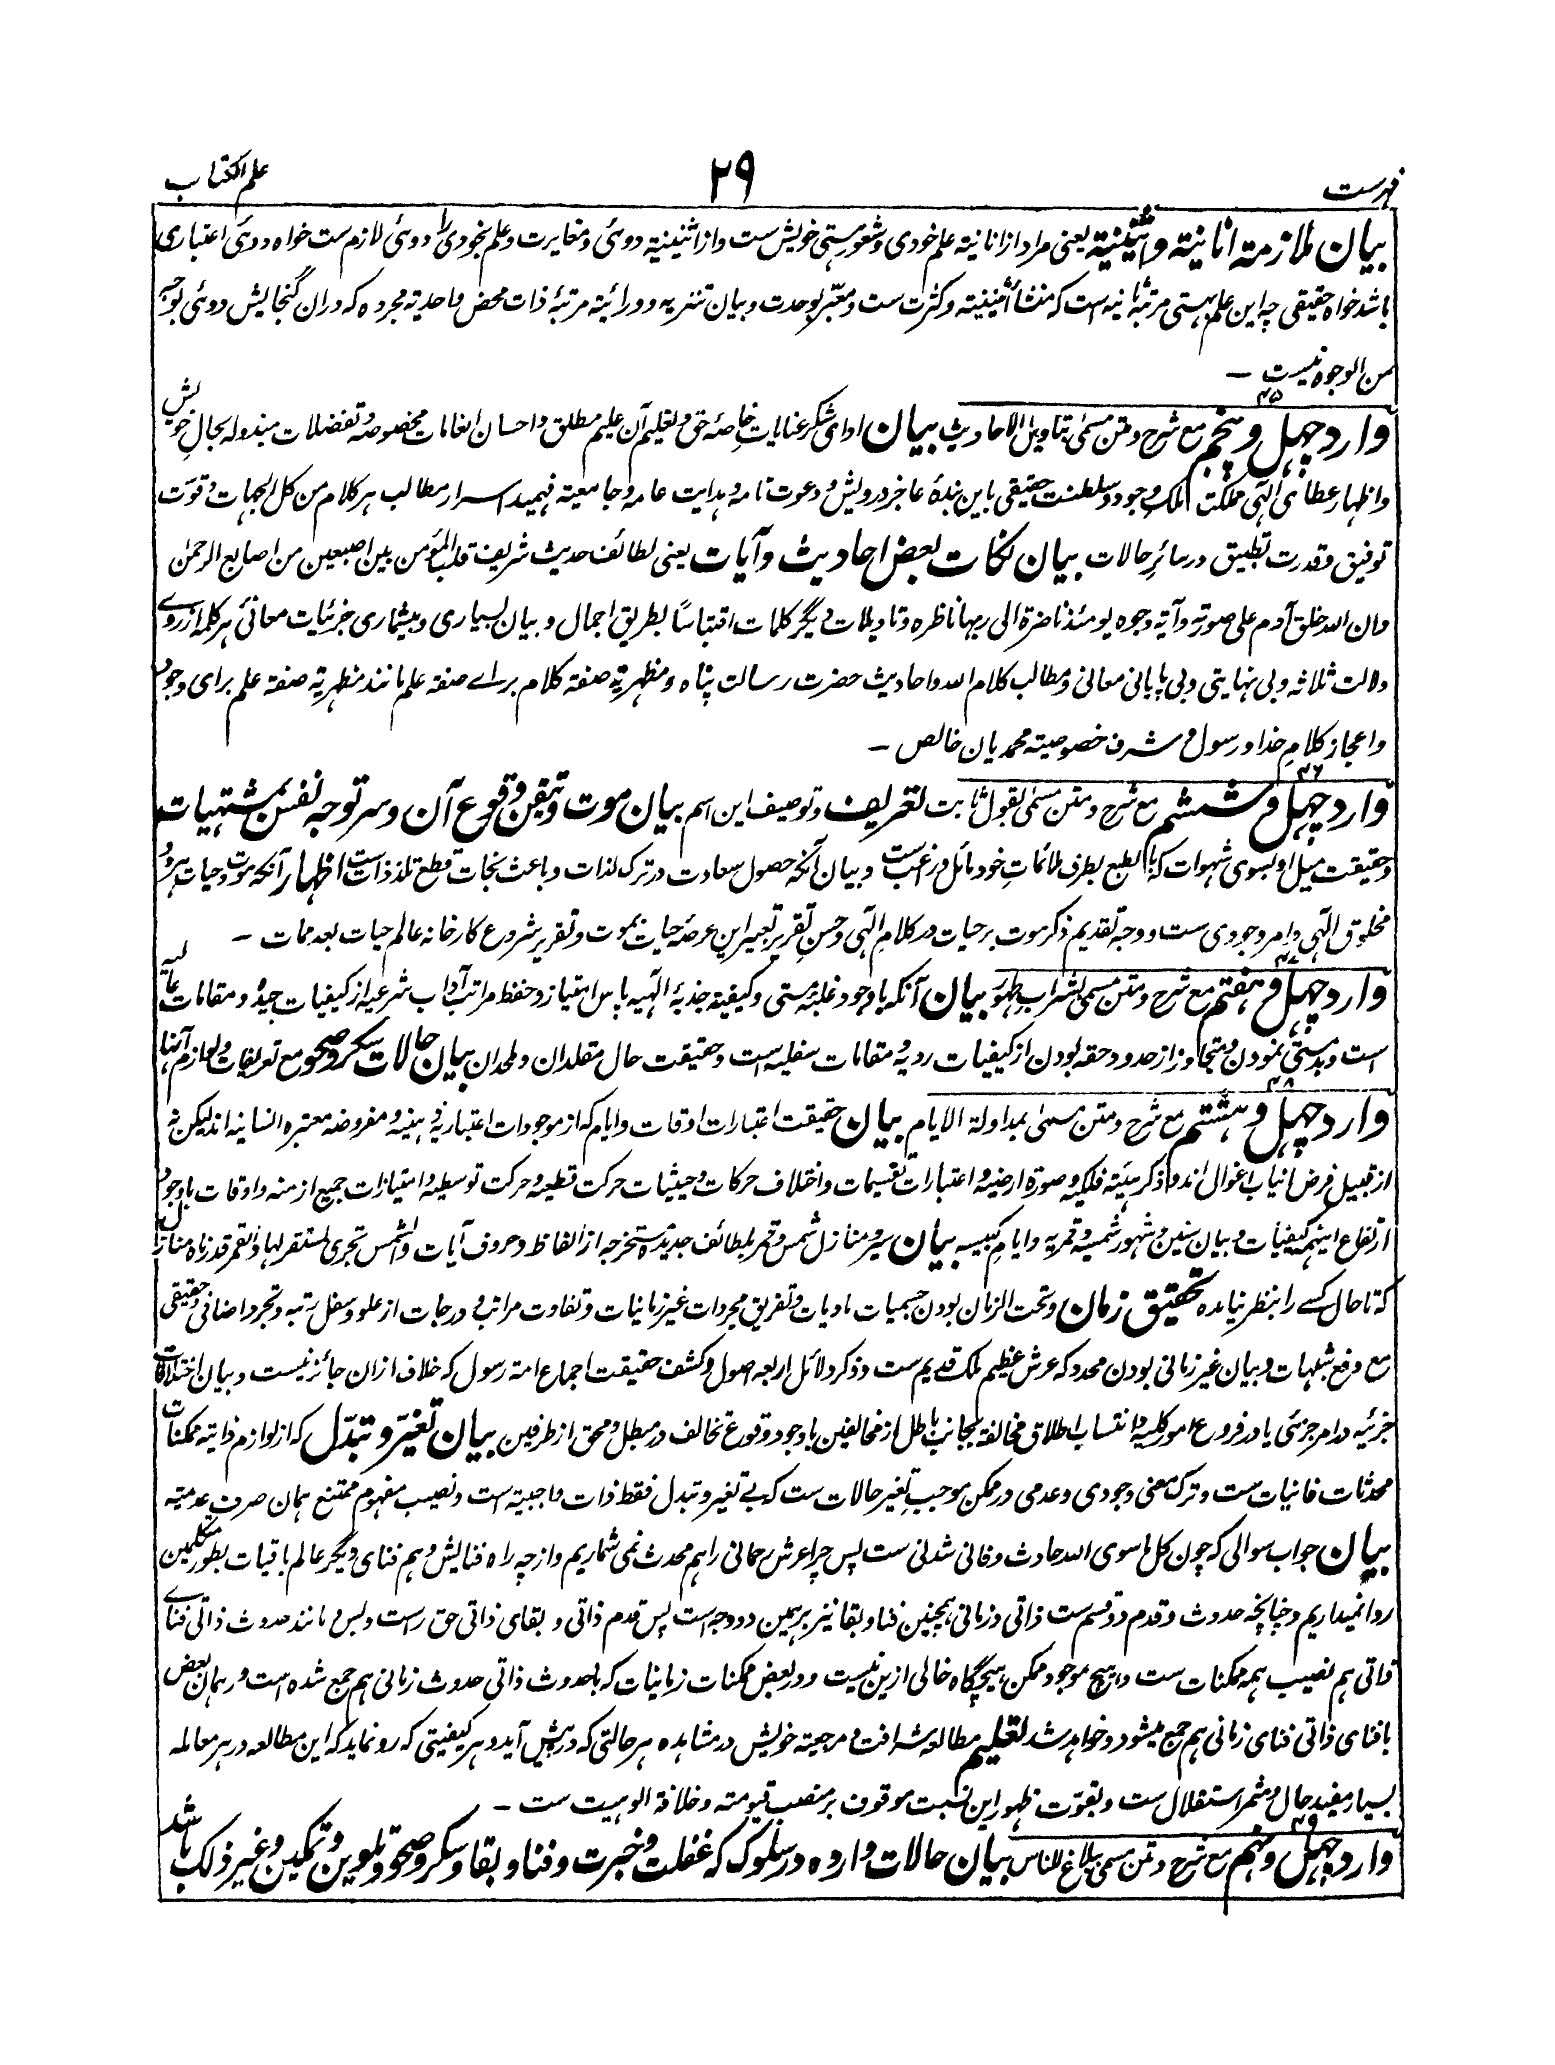 فهرست
۲۹
علم الکتاب
بیان ملازمة انانیة و اثنینیة یعنی مراد از انانیة علم خودی و شعور هستی خویش ست و از اثنینیة دوئی و مغایرت و علم بخودی را دوئی لازم ست خواه دوئی اعتباری
باشد خواه حقیقی چه این علم هستی مرتبۂ ثانیه است که منشأ اثنینیة و کثرت ست و معبّر بوحدت و بیان تنزیه و ورائیة مرتبۂ ذات محض و احدیة مجرده که دران گنجایش دوئی بوجه
من الوجوه نیست ـ
۴۵
وارد چهل و پنجم مع شرح و متن مسمیٰ بتاویل الاحادیث بیان ادای شکر عنایات خاصۂ حق و تعلیم آن علیم مطلق و احسان و انعامات مخصوصه و تفضلات مبذوله بحال خویش
و اظهار عطای الٰهی مملکت الملک وجود و سلطنت حقیقی باین بندۂ عاجز درویش و دعوت تامه و هدایت عامه و جامعیة فهمید اسرار مطالب هر کلام من کل الجهات و قوّت
توفیق و قدرت تطبیق در سائر حالات بیان نکات بعض احادیث و آیات یعنی لطائف حدیث شریف قلب المؤمن بین اصبعین من اصابع الرحمٰن
و ان الله خلق آدم علی صورته و آیه وجوه یومئذ ناضرة الی ربها ناظره و تاویلات دیگر کلمات اقتباسًا بطریق اجمال و بیان بسیاری و بیشماری جزئیات معانی هر کلمه از روے
دلالت ثلاثه و بی نهایتی و بی پایانی معانی و مطالب کلام الله و احادیث حضرت رسالت پناه و مظهریة صفة کلام براے صفة علم مانند مظهریة صفة علم برای وجود
و اعجاز کلام خدا و رسول و شرف خصوصیة محمدیان خالص ـ
۴۶
وارد چهل و ششم مع شرح و متن مسمیٰ بقول ثابت تعریف و توصیف این اسم بیان موت و تیقن وقوع آن و سر توجه نفس بمشتهیات
و حقیقت میل او بسوی شهوات که بالطبع بطرف ملائمات خود مائل و راغب ست و بیان آنکه حصول سعادت در ترک لذات و باعث نجات قطع تلذذات است اظهار آنکه موت و حیات هر دو
مخلوق الٰهی و امر وجودی ست و وجه تقدیم ذکر موت بر حیات در کلام الٰهی و حسن تقریر تعبیر این عرصۂ حیات بموت و تقریر شروع کارخانه عالم حیات بعد ممات ـ
۴۷
وارد چهل و هفتم مع شرح و متن مسمی بشراب طهور بیان آنکه باوجود غلبۂ مستی و کیفیة جذبۂ الٰهیه پاس امتیاز و حفظ مراتب آداب شرعیه از کیفیات جیده و مقامات عالیه
است و بدمستی نمودن و متجاوز از حدود حقه بودن از کیفیات ردیه و مقامات سفلیه است و حقیقت حال مقلدان و ملحدان بیان حالات سکر و صحو مع تعریفات و لوازم آنها
۴۸
وارد چهل و هشتم مع شرح و متن مسمیٰ بمداولة الایام بیان حقیقت اعتبارات اوقات و ایام که از موجودات اعتباریه و مفروضه معتبره انسانیه اند لیکن نه
از قبیل فرض انیاب اغوال اند و ذکر هیئة فلکیه و صورة ارضیه و اعتبارات تقسیمات و اختلاف حرکات و حیثیات حرکت قطعیه و حرکت توسطیه و امتیازات جمیع ازمنه و اوقات باوجود
ارتفاع اینهمه کیفیات و بیان سنین و شهور شمسیه و قمریه و ایام کبیسه بیان سیر و منازل شمس و قمر بلطائف جدیده مستخرجه از الفاظ و حروف آیات و الشمس تجری لمستقر لها و القمر قدرناه منازل
که تا حال کسے را بنظر نیامده تحقیق زمان و تحت الزمان بودن جسمیات مادیات و تفریق مجردات غیر زمانیات و تفاوت مراتب و درجات از علو و سفل رتبه و تجرد اضافی و حقیقی
مع دفع شبهات و بیان غیر زمانی بودن محدد که عرش عظیم ملک قدیم ست و ذکر دلائل اربعه اصول و کشف حقیقت اجماع امة رسول که خلاف ازان جائز نیست و بیان اختلافات
جزئیه در امر جزئی یا در فروع امور کلیه و انتساب اطلاق مخالفة بجانب باطل از مخالفین باوجود وقوع تخالف در مبطل و محق از طرفین بیان تغیّر و تبدّل که از لوازم ذاتیه ممکنات
محدثات فانیات ست و ترک معنی وجودی و عدمی در ممکن موجب تغیر حالات ست که بے تغیر و تبدل فقط ذات واجبیة است و نصیب مفهوم ممتنع همان صرف عدمیة
بیان جواب سوالی که چون کل ما سوی الله حادث و فانی شدنی ست پس چرا عرش رحمانی را هم محدث نمی شماریم و از چه راه فنایش و هم فنای دیگر عالم باقیات بطور متکلمین
روا نمیداریم و چنانچه حدوث و قدم دو قسم ست ذاتی و زمانی همچنین فنا و بقا نیز بر همین دو وجه است پس قدم ذاتی و بقای ذاتی حق راست و بس و مانند حدوث ذاتی فناے
ذاتی هم نصیب همه ممکنات ست و هیچ موجود ممکن هیچگاه خالی ازین نیست و در بعض ممکنات زمانیات که با حدوث ذاتی حدوث زمانی هم جمع شده است در همان بعض
با فنای ذاتی فنای زمانی هم جمع میشود و خواهد شد تعلیم مطالعه شرافت و مرجعیة خویش در مشاهده هر حالتی که در پیش آید و هر کیفیتی که رو نماید که این مطالعه در هر معامله
بسیار مفید حال و مثمر استقلال ست و بقوّت ظهور این نسبت موقوف بر منصب قیومیة و خلافة الوهیت ست ـ
۴۹
وارد چهل و نهم مع شرح و متن مسمی ببلاغ للناس بیان حالات وارده در سلوک که غفلت و خبرت و فنا و بقا و سکر و صحو و تلوین و تمکین و غیر ذلک باشد